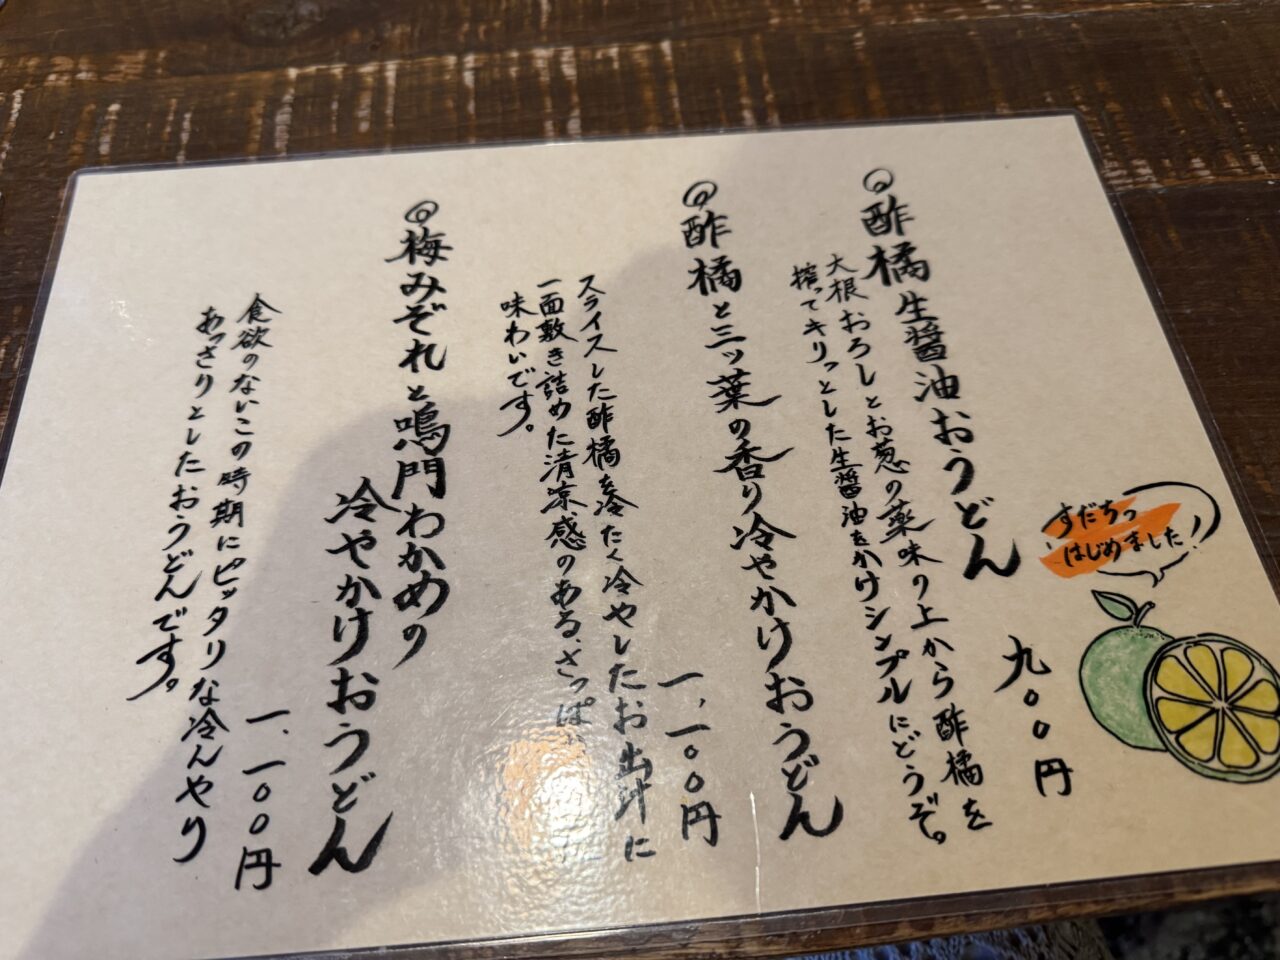 ◎酢橘生醤油おうどん
大根おろしとお葱の薬味の上から酢橘を
搾ってキリっとした生醤油をかけシンプルにどうぞ。
九〇〇円
すだちっ
はじめました!
◎酢橘と三ッ葉の香り冷やかけおうどん
一、一〇〇円
スライスした酢橘を冷たく冷やしたお出汁に
一面敷き詰めた清涼感のある、さっぱ
味わいです。
◎梅みぞれと鳴門わかめの
冷やかけおうどん
一、一〇〇円
食欲のないこの時期にピッタリな冷んやり
あっさりとしたおうどんです。